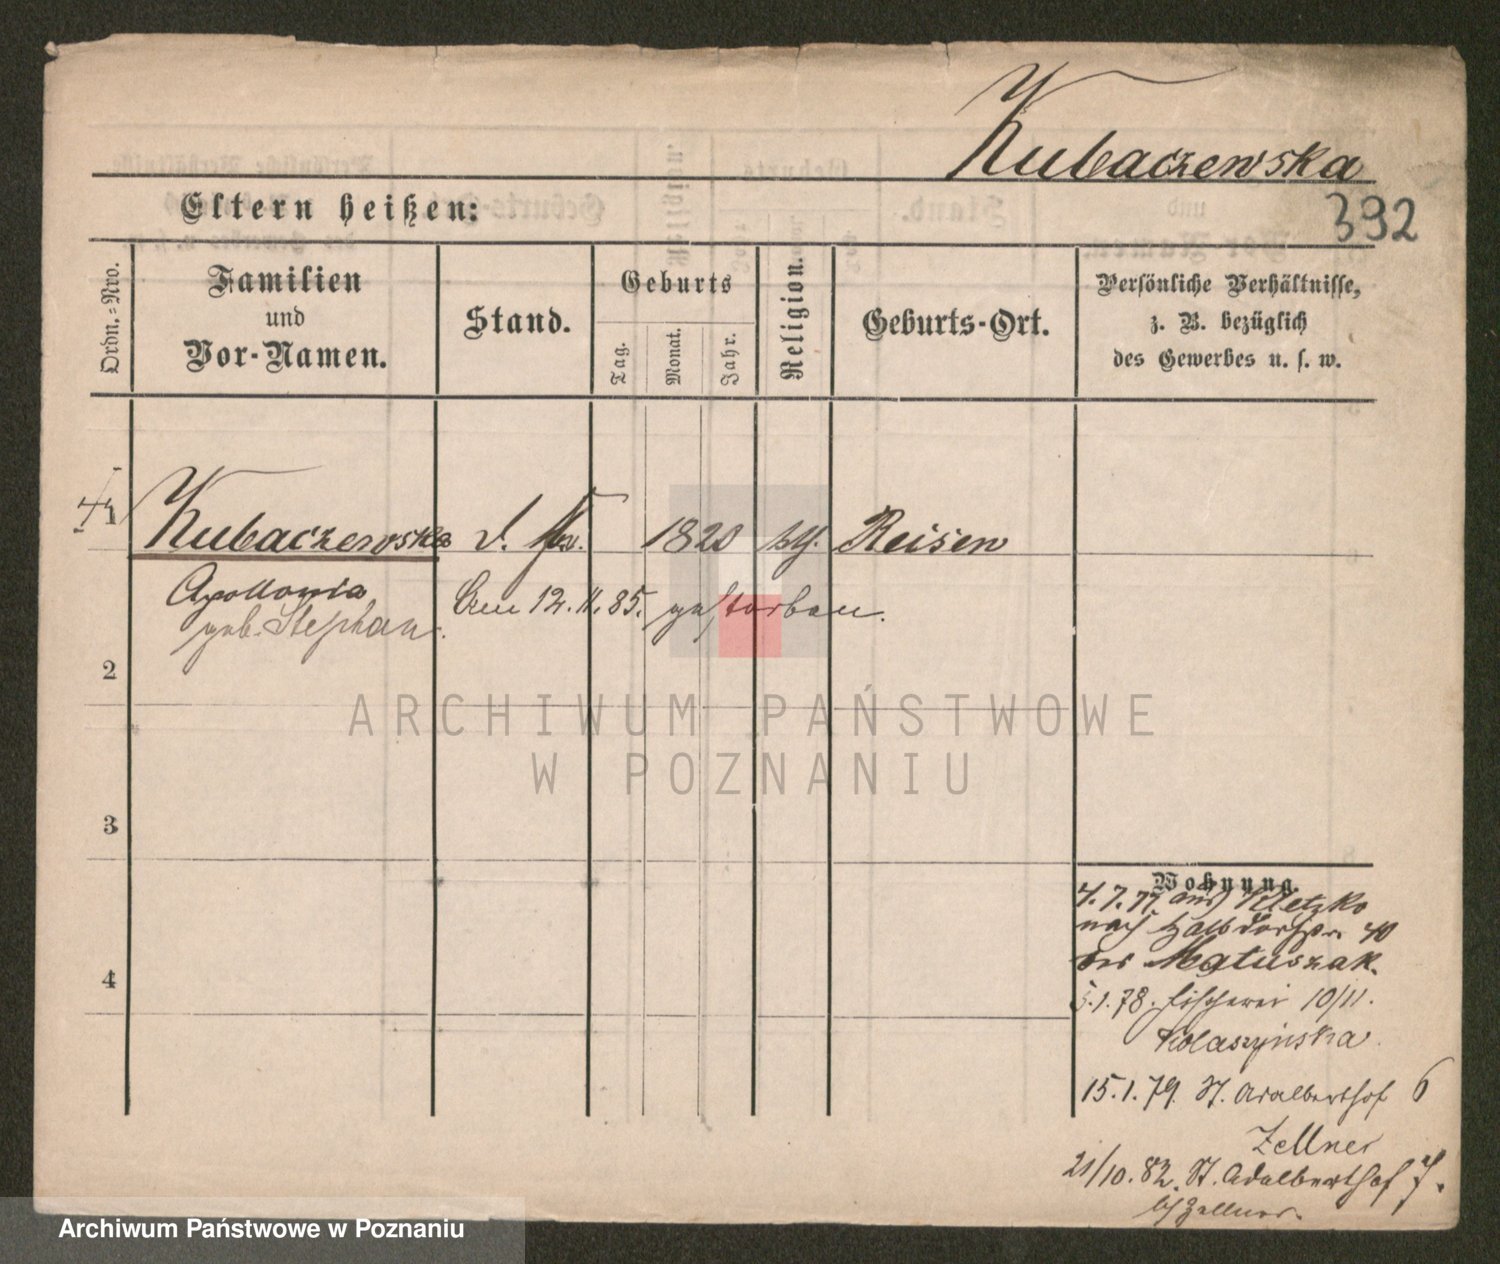 Kubaczewska
392
Eltern heißen:
Ordn.-Nro.
Familien
und
Vor-Namen.
Stand.
Geburts
Tag.
Monat.
Jahr.
Religion.
Geburts-Ort.
Persönliche Verhältnisse,
z. B. bezüglich
des Gewerbes u. s. w.
1
Kubaczewska 1820 kth. Reisen
Apollonia, Am 12.11.85. gestorben.
geb. Stephan.
2
3
4
Wohnung.
4.7.77. aus Kletzko
nach Halbdorfstr. 40
bei Matuszak.
5.1.78. Fischerei 10/11.
Kolaszyńska
15.1.79. St. Adalberthof 6
Zellner
21/10.82. St. Adalberthof 7.
b/ Zellner.
ARCHIWUM PAŃSTWOWE
W POZNANIU
Archiwum Państwowe w Poznaniu